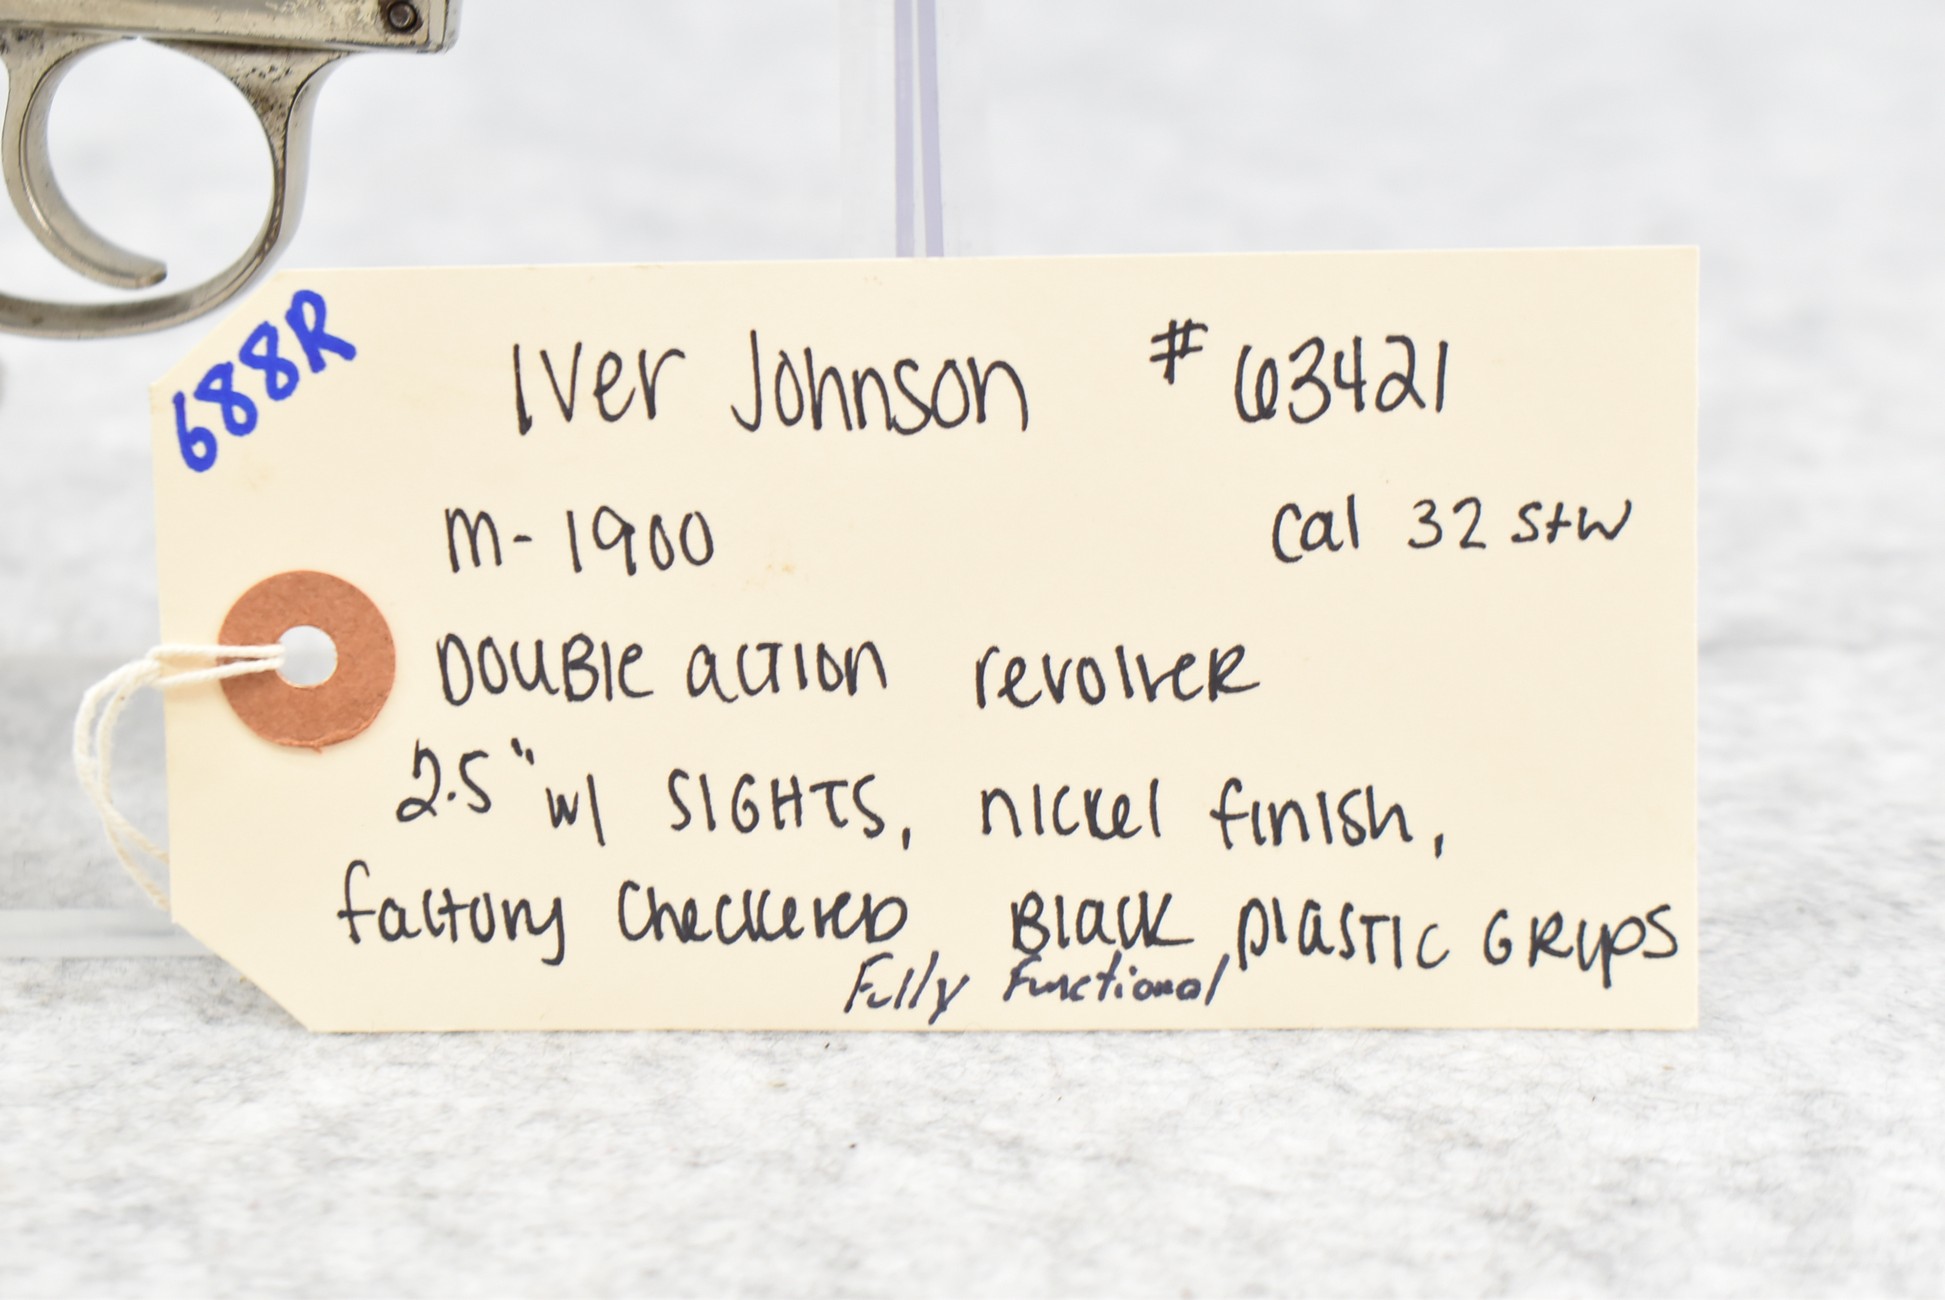 688R
Iver Johnson # 63421
M-1900 Cal 32 S+W
Double action revolver
2.5" w/ SIGHTS, nickel finish,
factory checkered Black plastic GRips
Fully Functional